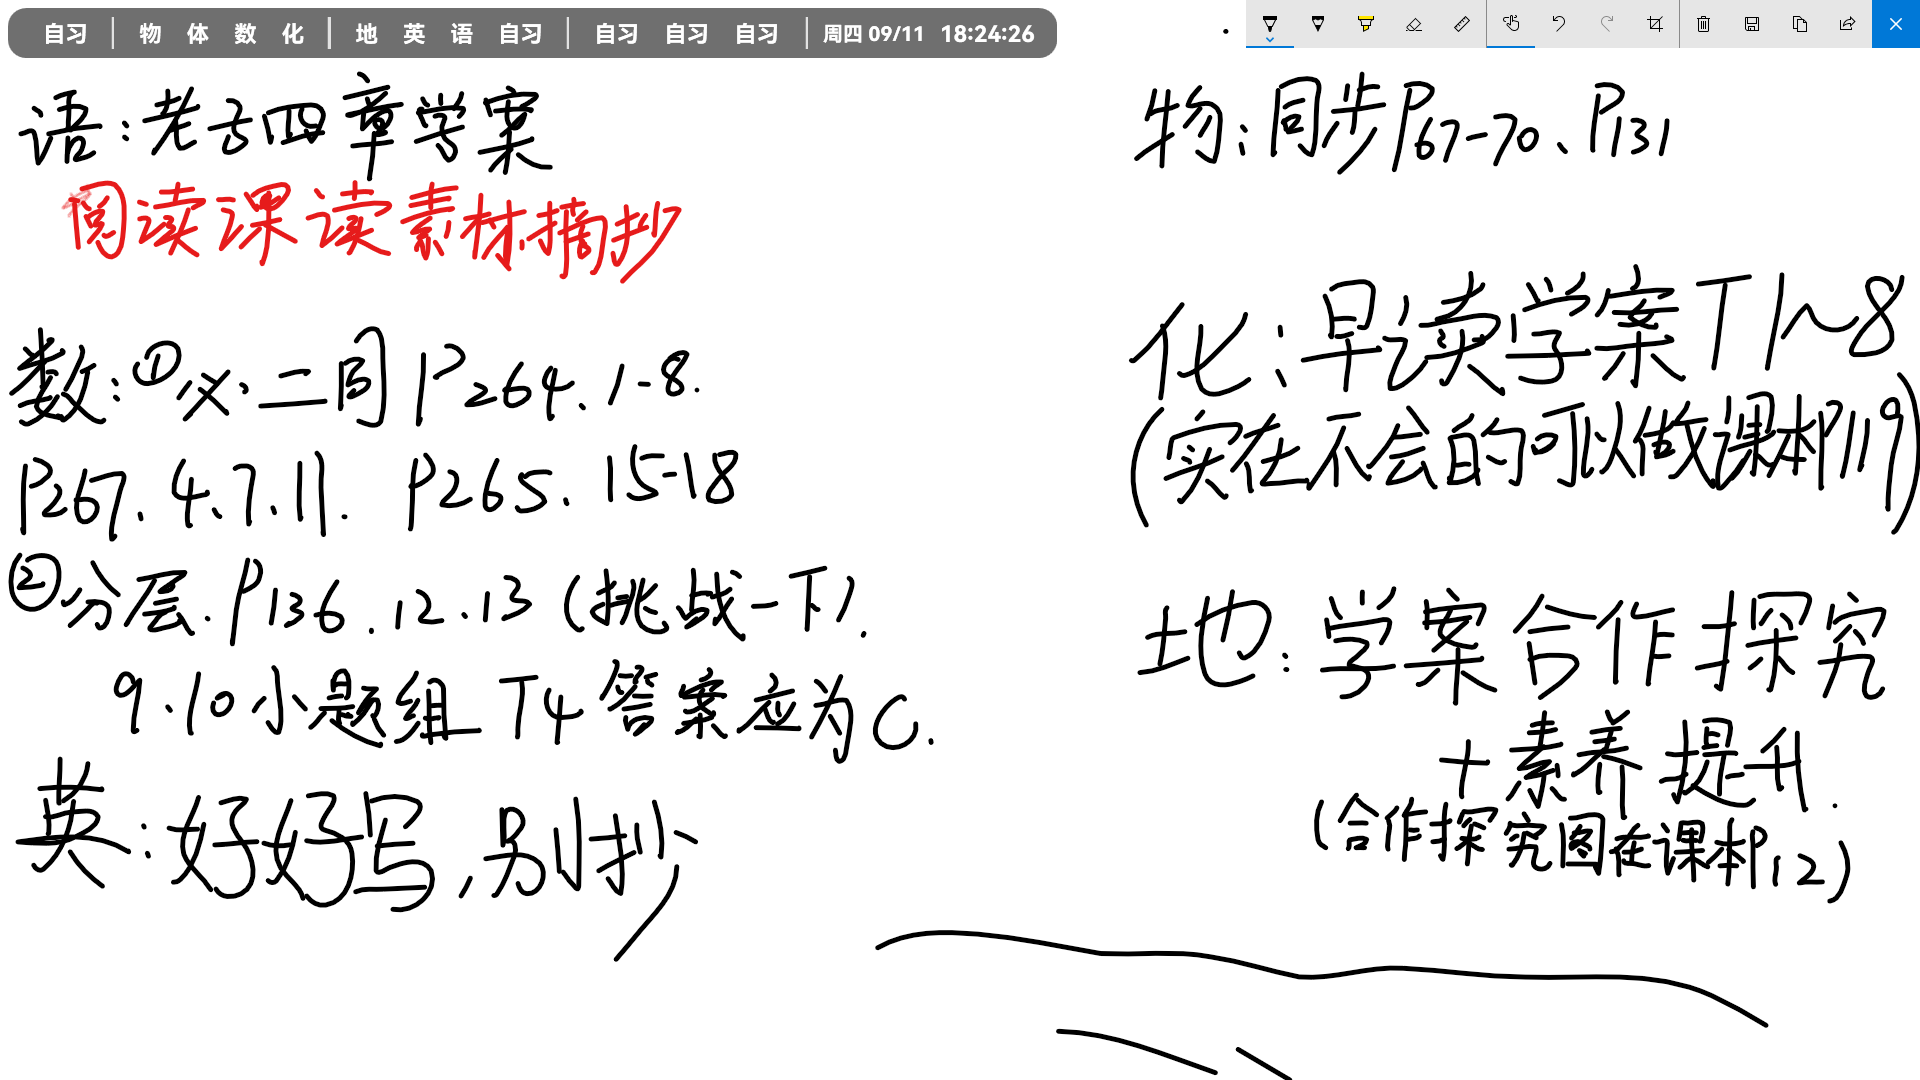 自习 | 物 体 数 化 | 地 英 语 自习 | 自习 自习 自习 | 周四 09/11 18:24:26
语:老子四章学案
阅读课读素材摘抄
数:①必.二同 P264.1-8.
P267.4.7.11. P265.15-18
②分层.P136.12.13(挑战一下).
9.10小题组 T4答案应为C.
英:好好写,别抄
物:同步P67-70、P131
化:早读学案T1~8
(实在不会的可以做课本P119)
地:学案合作探究
+素养提升.
(合作探究图在课本P12)